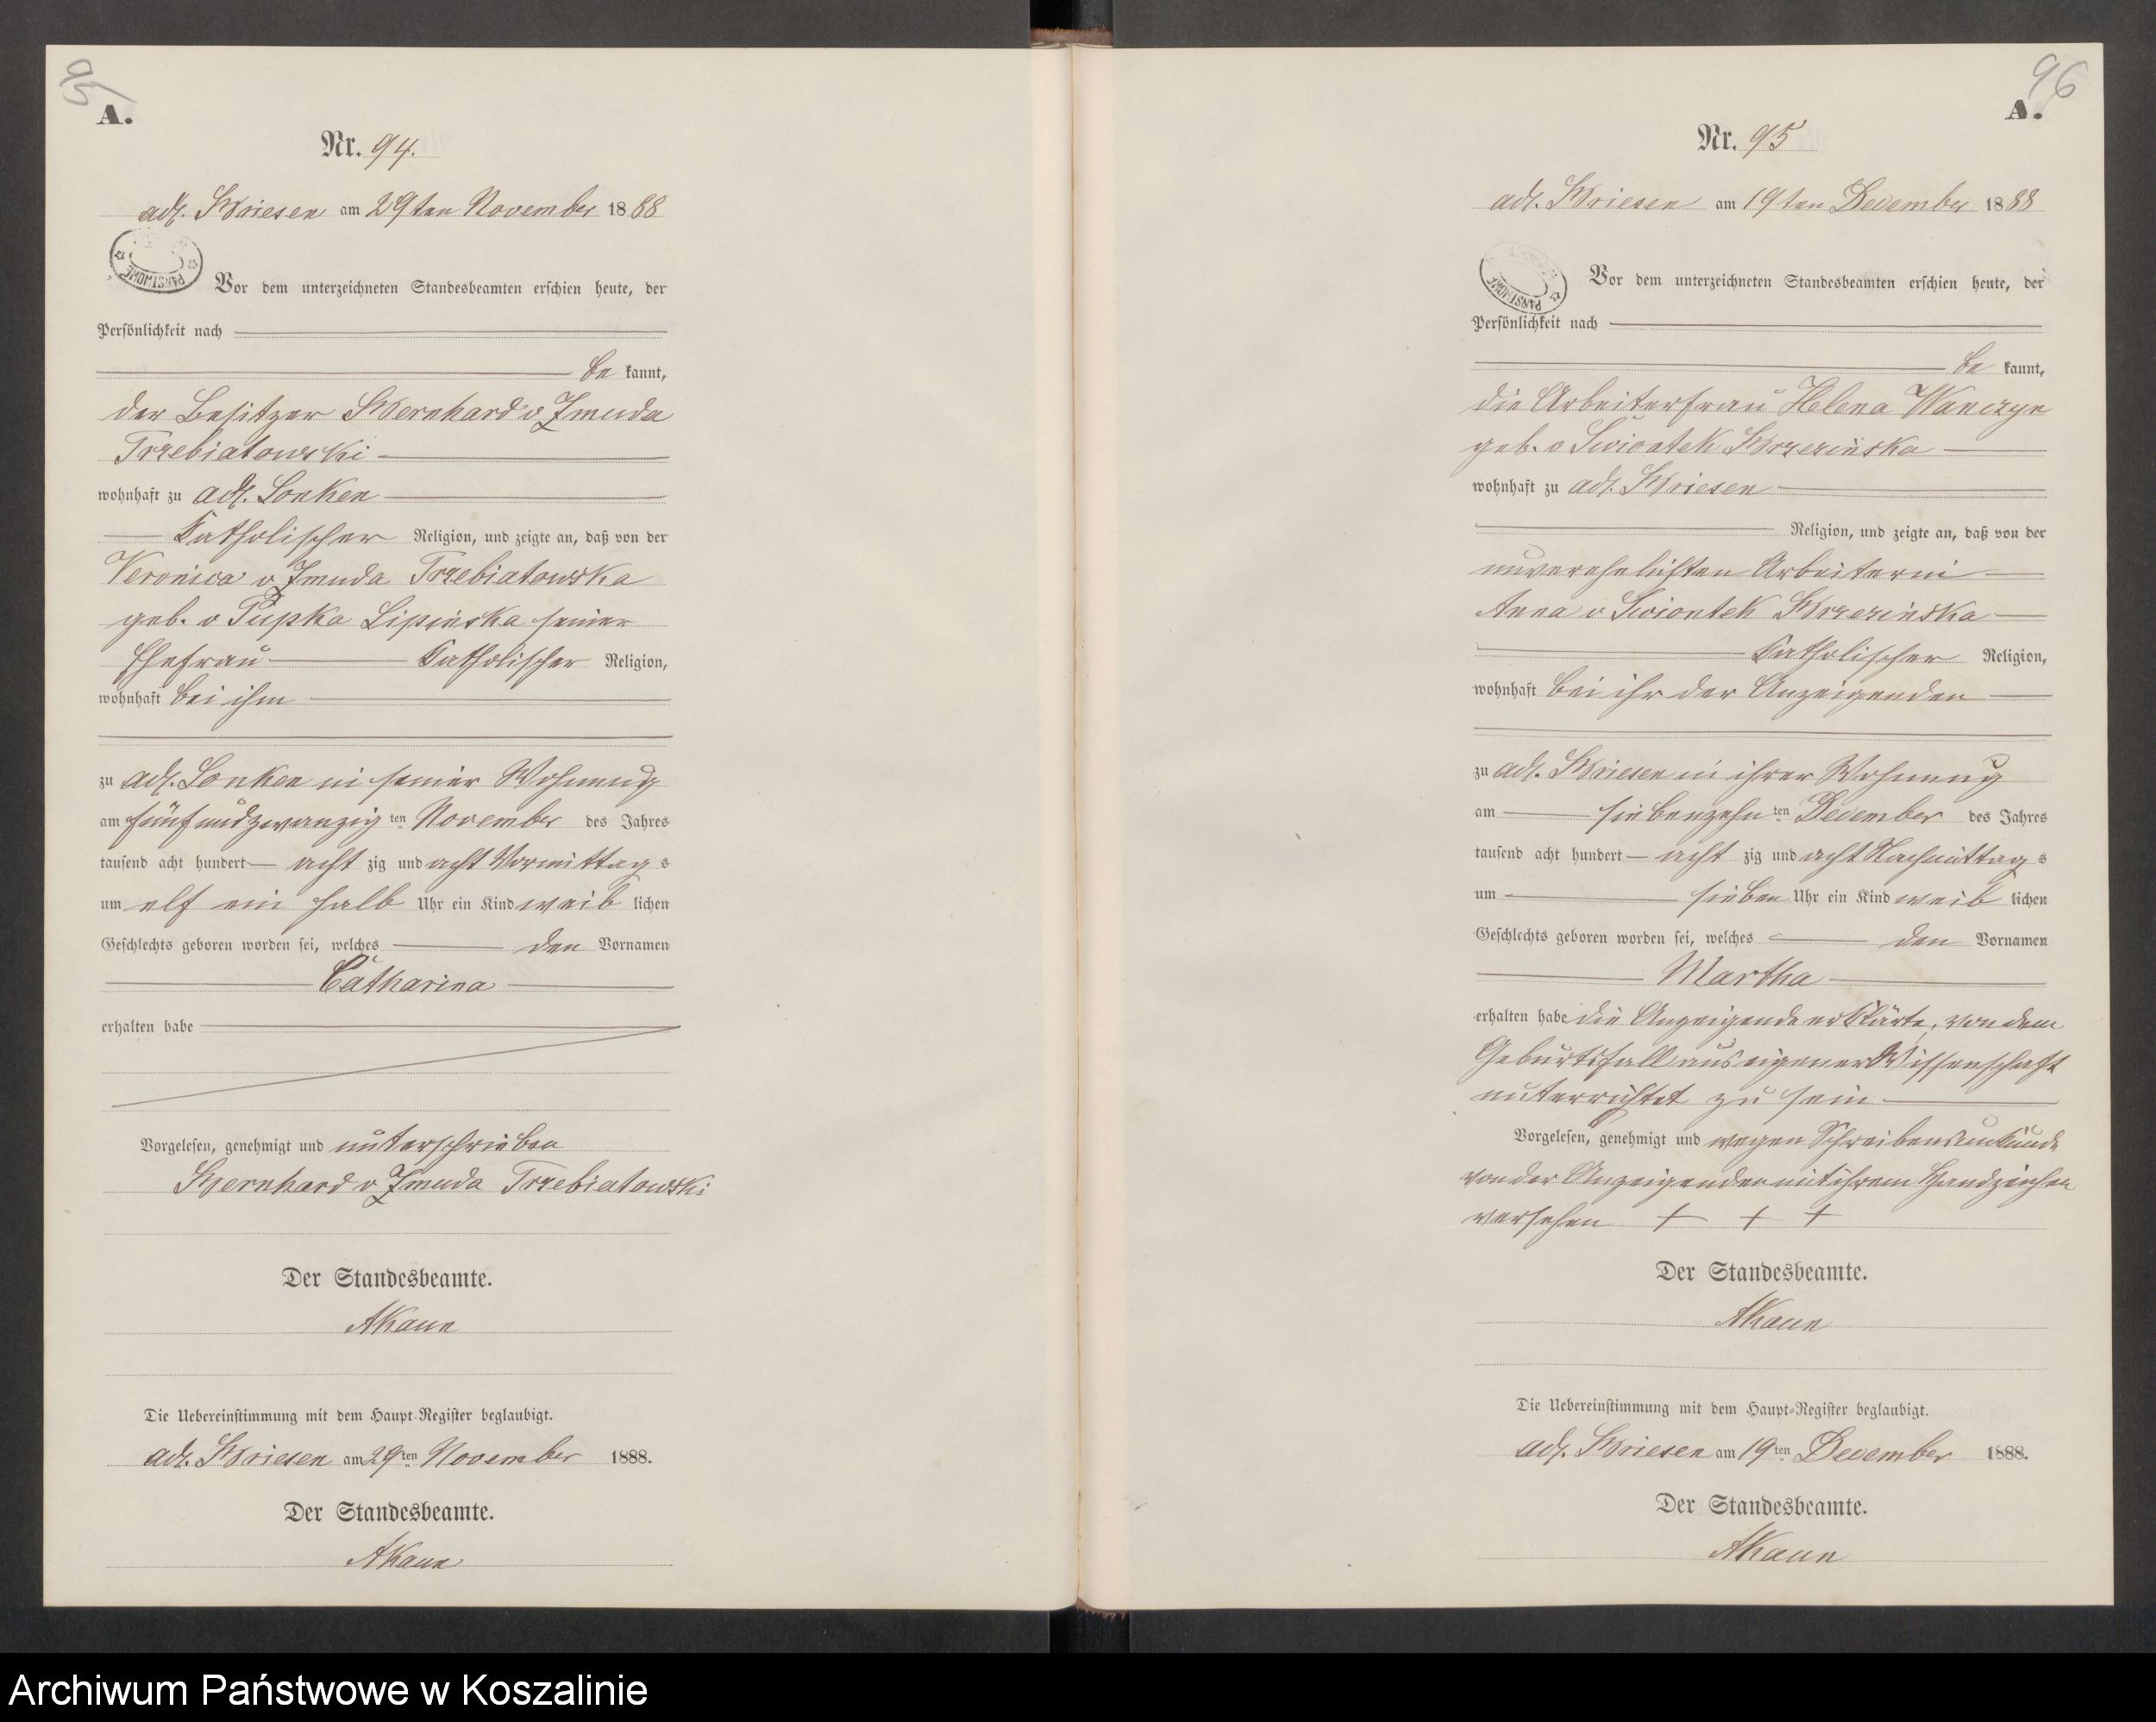 95
A.
Nr. 94.
adl. Briesen am 29ten November 1888
Vor dem unterzeichneten Standesbeamten erschien heute, der
Persönlichkeit nach
be kannt,
der Besitzer Bernhard v Zmuda
Trzebiatowski
wohnhaft zu adl. Lonken
Katholischer Religion, und zeigte an, daß von der
Veronica v Zmuda Trzebiatowska
geb. v Pupka Lipinska seiner
Ehefrau Katholischer Religion,
wohnhaft bei ihm
zu adl. Lonken in seiner Wohnung
am fünfundzwanzig ten November des Jahres
tausend acht hundert acht zig und acht Vormittag s
um elf ein halb Uhr ein Kind weib lichen
Geschlechts geboren worden sei, welches den Vornamen
Catharina
erhalten habe
Vorgelesen, genehmigt und unterschrieben
Bernhard v Zmuda Trzebiatowski
Der Standesbeamte.
AKaun
Die Uebereinstimmung mit dem Haupt-Register beglaubigt.
adl. Briesen am 29 ten November 1888.
Der Standesbeamte.
AKaun
96
A.
Nr. 95
adl. Briesen am 19ten December 1888
PAŃSTWOWE
Vor dem unterzeichneten Standesbeamten erschien heute, der
Persönlichkeit nach
be kannt,
die Arbeiterfrau Helena Wanczyn
geb. v Swiontek Brzezinska
wohnhaft zu adl. Briesen
Religion, und zeigte an, daß von der
unverehelichten Arbeiterin
Anna v Swiontek Brzezinska
Katholischer Religion,
wohnhaft bei ihr der Anzeigenden
zu adl. Briesen in ihrer Wohnung
am siebenzehn ten December des Jahres
tausend acht hundert acht zig und acht Nachmittag s
um sieben Uhr ein Kind weib lichen
Geschlechts geboren worden sei, welches den Vornamen
Martha
erhalten habe die Anzeigende erklärte, von dem
Geburtsfall aus eigener Wissenschaft
unterrichtet zu sein
Vorgelesen, genehmigt und wegen Schreibensunkunde
von der Anzeigenden mit ihrem Handzeichen
versehen + + +
Der Standesbeamte.
AKaun
Die Uebereinstimmung mit dem Haupt-Register beglaubigt.
adl. Briesen am 19 ten December 1888.
Der Standesbeamte.
AKaun
Archiwum Państwowe w Koszalinie